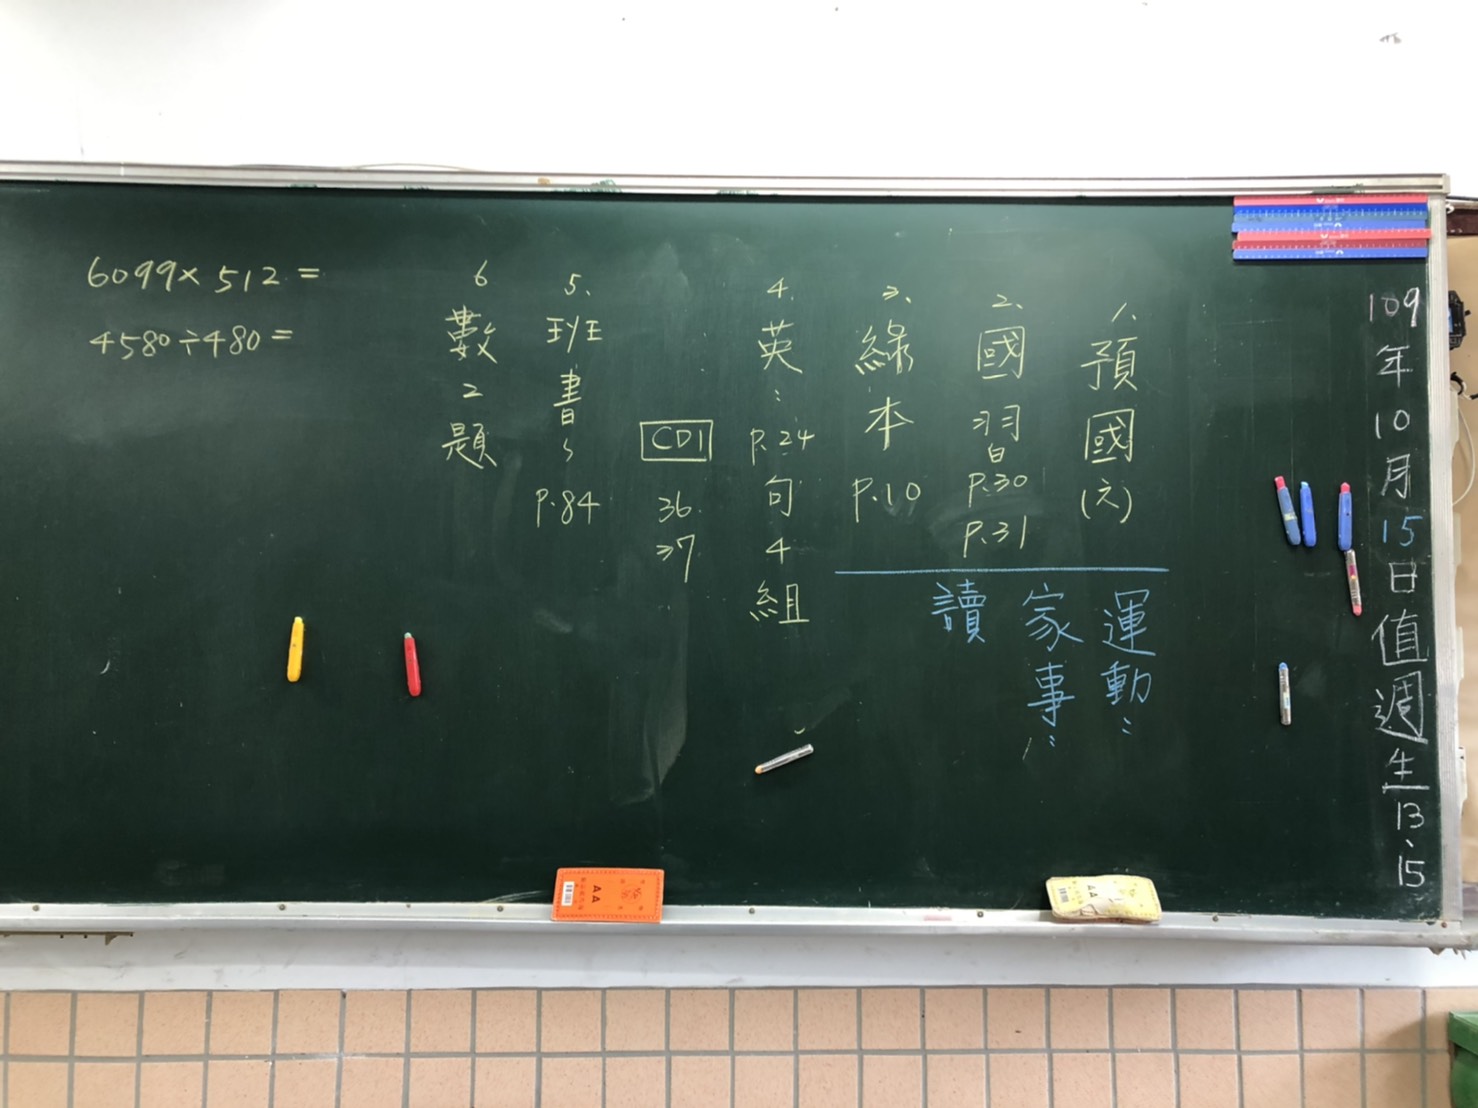 109年10月15日值週生13、15
1、預國(六)
2、國習P.30
P.31
3、綠本P.10
4.英：P.24句4組
CD1
36
37
5、班書～P.84
6數2題
運動：
家事：
讀
6099×512=
4580÷480=